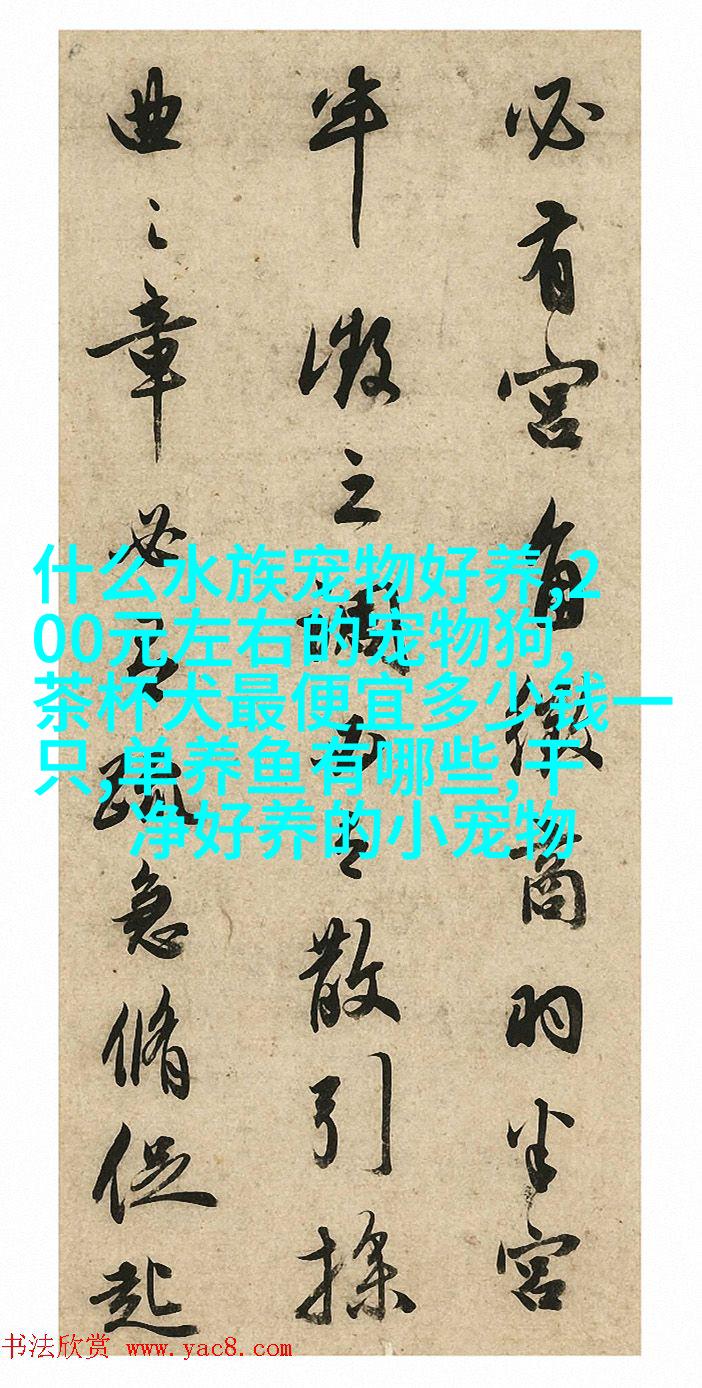 必有宫角徵商羽半宫
半徵之散引操
曲之章必疏急脩促起
什么水族宠物好养,2
00元左右的宠物狗,
茶杯犬最便宜多少钱一
只,单养鱼有哪些,干
净好养的小宠物
书法欣赏 www.yac8.com